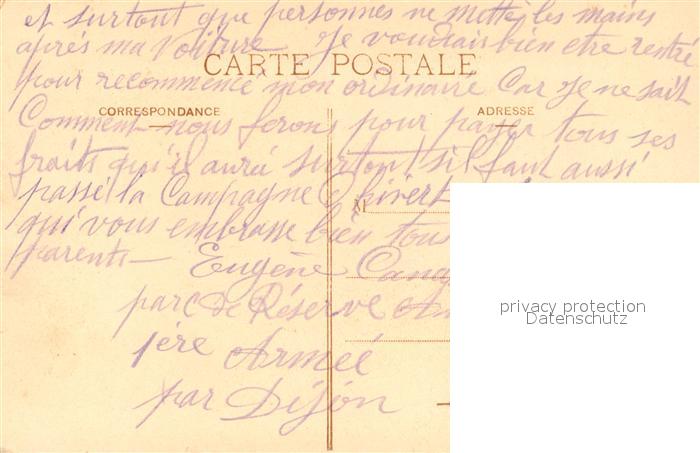 et surtout que personnes ne mette les mains
après ma Voiture Je voudrais bien etre rentré
CARTE POSTALE
pour recommencé mon ordinaire Car Je ne sait
CORRESPONDANCE
ADRESSE
Comment nous ferons pour payer tous ses
fraits qu'il auré surtout s'il faut aussi
passé la Campagne
M
qui vous embrasse bien tous
parents
Eugène
privacy protection
Datenschutz
parc De Réserve
1ère Armée
par Dijon